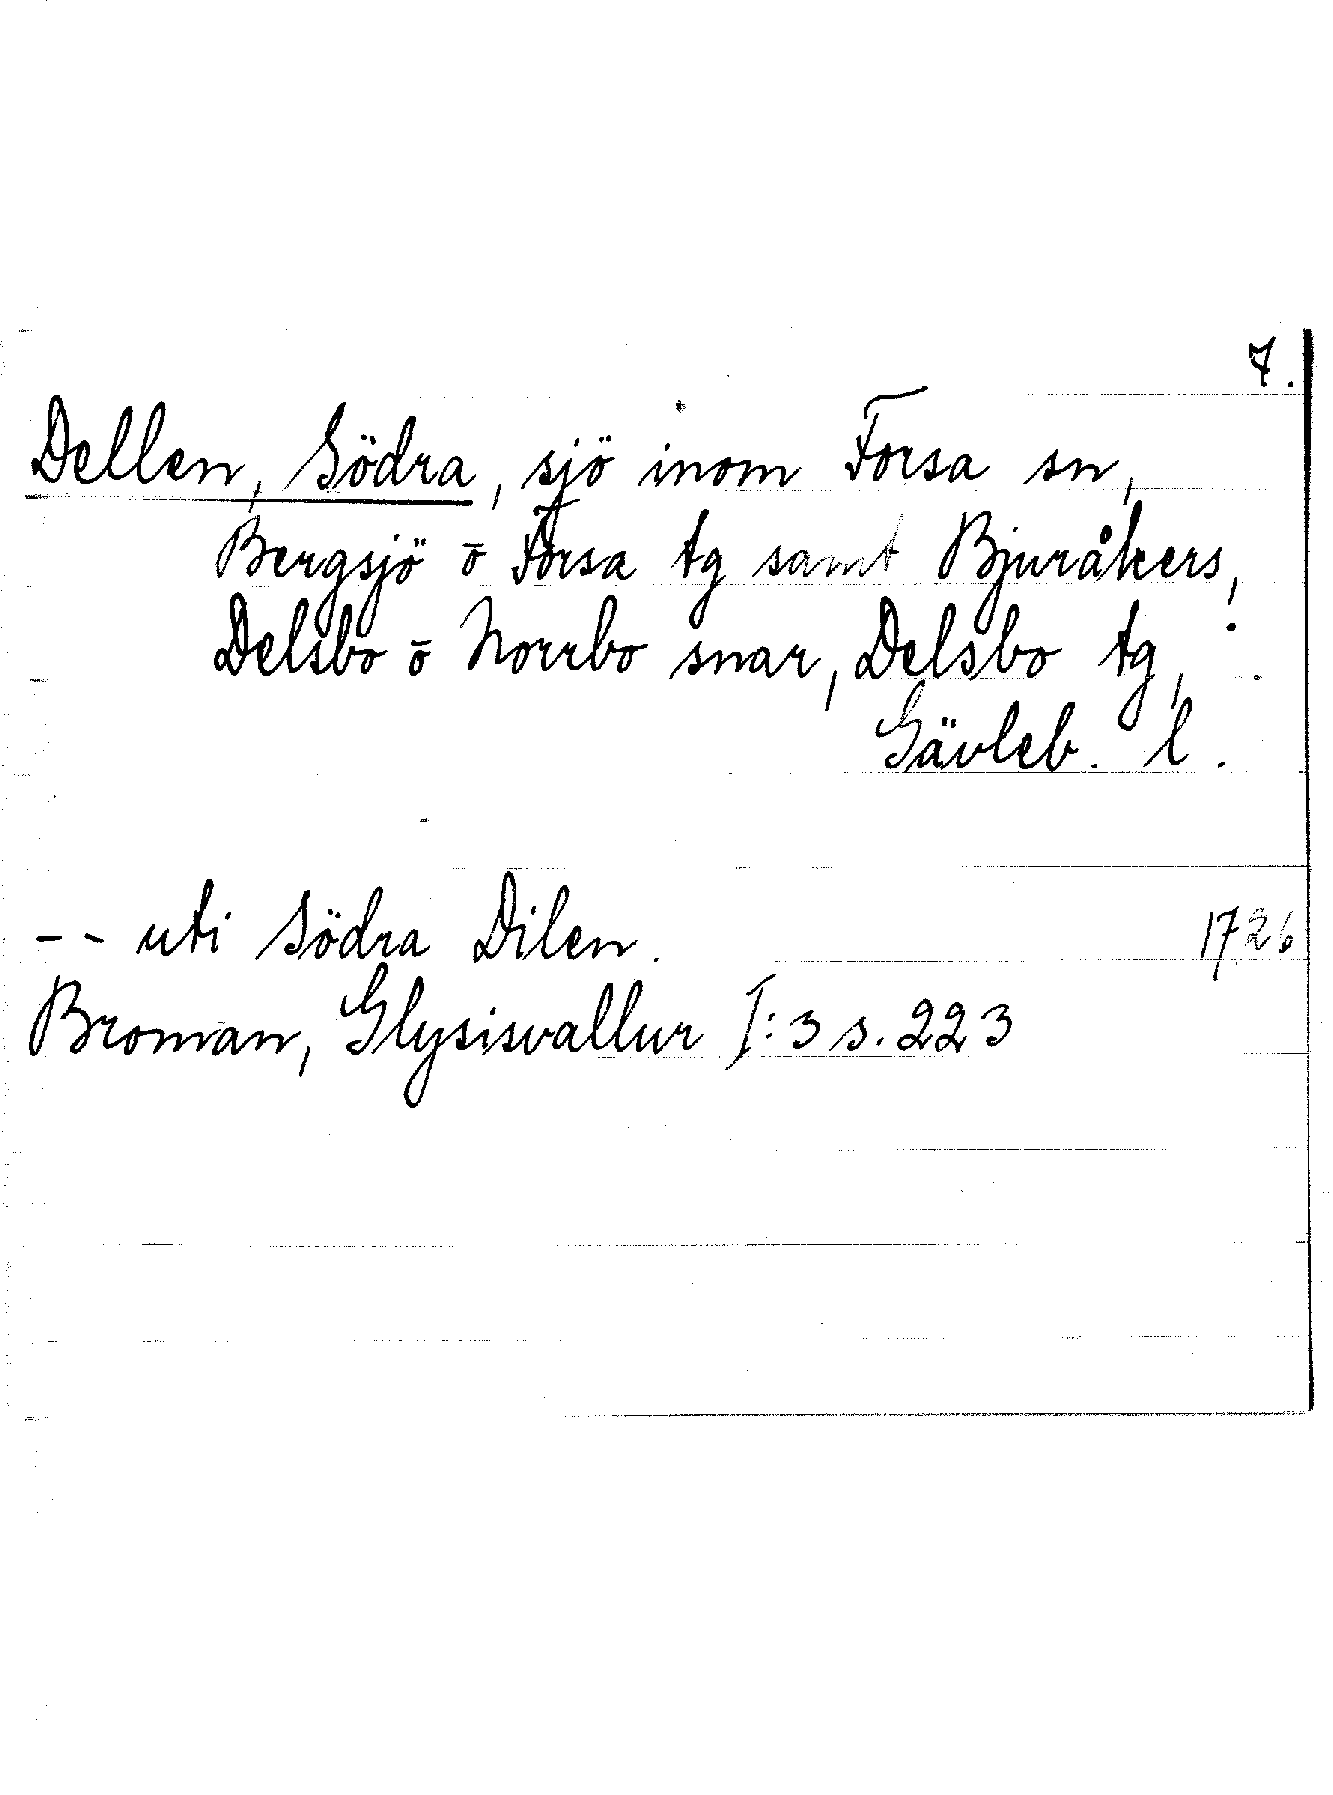 7.
Dellen, Södra, sjö inom Forsa sn,
Bergsjö o Forsa tg samt Bjuråkers,
Delsbo o Norrbo snar, Delsbo tg,
Gävleb. l.
-- uti Södra Dilen. 1726
Broman, Glysisvallur I:3 s. 223